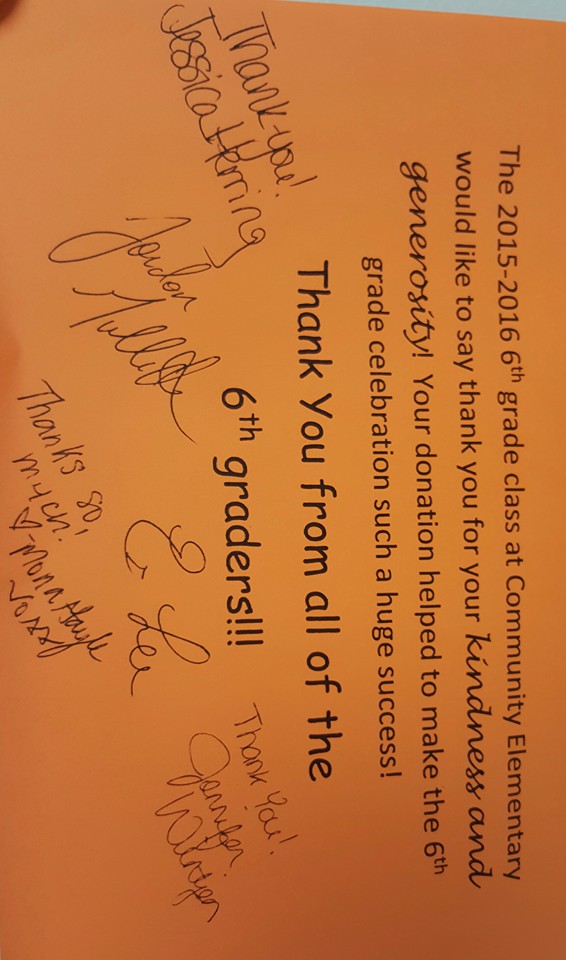 The 2015-2016 6th grade class at Community Elementary
would like to say thank you for your kindness and
generosity! Your donation helped to make the 6th
grade celebration such a huge success!
Thank You from all of the
6th graders!!!
Thank you!
Jessica Herring
Jordon
E Lee
Thanks so
much!
Thank you!
Jennifer